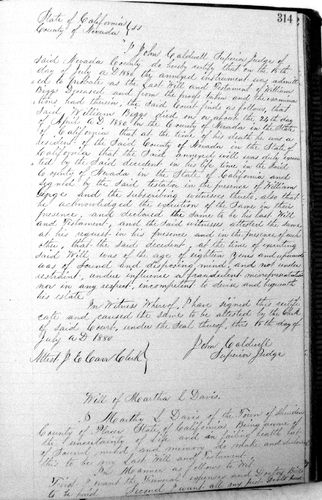 314
State of California } SS
County of Nevada
I John Caldwell Superior Judge of
said Nevada County do hereby certify that on the 15th
day of July A.D. 1880 the annexed instrument was admitt-
ed to probate as the Last Will and Testament of William
Biggs Deceased and from the proofs taken and the examina
tions had therein, the said Court finds as follows, that
Said William Biggs died on or about the 24th day
of April A.D. 1880 in the County of Nevada in the State
of California that at the time of his death he was a
resident of the said County of Nevada in the State of
California that the said annexed will was duly execu
ted by the said decedent in his life time in the said
County of Nevada in the State of California and
signed by the said testator in the presence of William
and the subscribing witness thereto, also that
he acknowledged the execution of the same in their
presence, and declared the same to be his last Will
and Testament, and the said witnesses attested the same
at his request in his presence and in the presence of each
other, that the said decedent, at the time of executing
said Will, was of the age of eighteen years and upwards
was of sound and disposing mind and not under
restraint, undue influence or fraudulent misrepresentation
nor in any respect incompetent to devise and bequeath
his estate.
In Witness Whereof, I have signed this certifi
cate and caused the same to be attested by the Clerk
of said Court, under the seal thereof, this 15th day of
July A.D. 1880
John Caldwell
Superior Judge
Attest J E Carr Clerk }
Will of Martha L Davis.
I Martha L Davis of the Town of
County of Placer State of California, Being aware of
the uncertainty of life and in failing health but
of sound mind and memory do make and declare
this to be my Last Will and Testament.
In Manner as follows to wit
First I want the Funeral expenses and Doctors Bill
to be paid. Second I want all my just debts